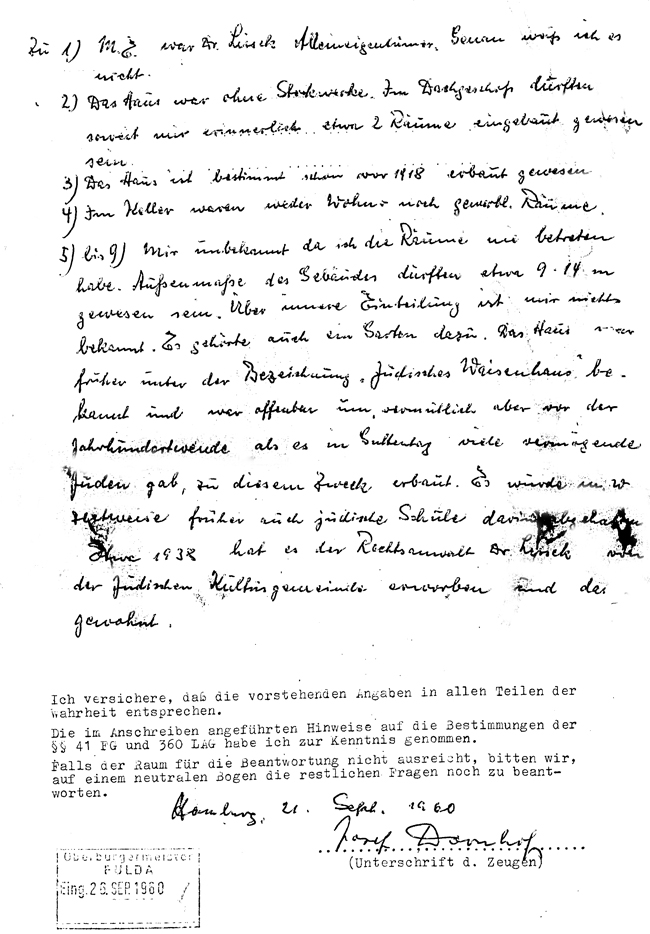 Zu 1) M.E. war Dr. Lissek Alleineigentümer. Genau weiß ich es
nicht.
2) Das Haus war ohne Stockwerke. Im Dachgeschoß dürften
soweit mir erinnerlich etwa 2 Räume eingebaut gewesen
sein.
3) Das Haus ist bestimmt schon vor 1918 erbaut gewesen
4) Im Keller waren weder Wohn- noch gewerbl. Räume.
5) bis 9) Mir unbekannt da ich die Räume nie betreten
habe. Außenmaße des Gebäudes dürften etwa 9 · 14 m
gewesen sein. Über innere Einteilung ist mir nichts
bekannt. Es gehörte auch ein Garten dazu. Das Haus war
früher unter der Bezeichnung „Jüdisches Waisenhaus" be-
kannt und war offenbar um, vermutlich aber vor der
Jahrhundertwende als es in Guttentag viele vermögende
Juden gab, zu diesem Zweck erbaut. Es wurde m. W
zeitweise früher auch jüdische Schule darin abgehalten
Etwa 1938 hat es der Rechtsanwalt Dr. Lissek von
der Jüdischen Kultusgemeinde erworben und da
gewohnt.
Ich versichere, daß die vorstehenden Angaben in allen Teilen der
Wahrheit entsprechen.
Die im Anschreiben angeführten Hinweise auf die Bestimmungen der
§§ 41 FG und 360 LAG habe ich zur Kenntnis genommen.
Falls der Raum für die Beantwortung nicht ausreicht, bitten wir,
auf einem neutralen Bogen die restlichen Fragen noch zu beant-
worten.
Hamburg, 21. Sept. 1960
Josef
(Unterschrift d. Zeugen)
Oberbürgermeister
FULDA
Eing. 26. SEP. 1960